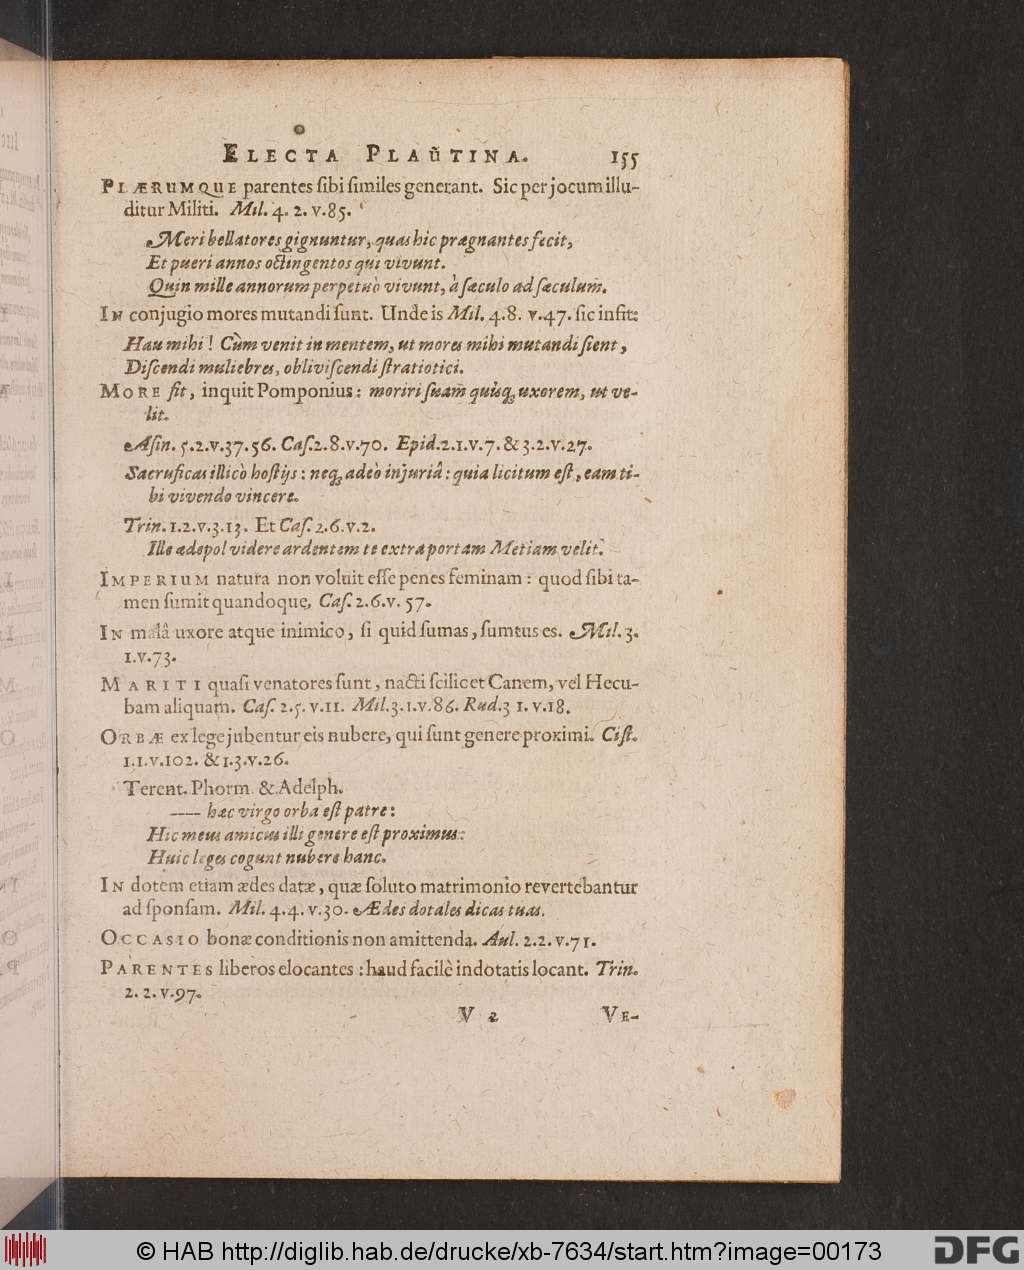 ELECTA PLAŨTINA. 155
PLÆRUMQUE parentes ſibi ſimiles generant. Sic per jocum illu-
ditur Militi. Mil. 4. 2. v.85.
Meri bellatores gignuntur, quas hic prægnantes fecit,
Et pueri annos octingentos qui vivunt.
Quin mille annorum perpetuò vivunt, à ſæculo ad ſæculum.
IN conjugio mores mutandi ſunt. Unde is Mil. 4.8. v.47. ſic infit:
Hau mihi! Cùm venit in mentem, ut mores mihi mutandi ſient,
Diſcendi muliebres, obliviſcendi ſtratiotici.
MORE fit, inquit Pomponius: moriri ſuam quiſq; uxorem, ut ve-
lit.
Aſin. 5.2.v.37.56. Caſ.2.8.v.70. Epid.2.1.v.7. & 3.2.v.27.
Sacruficas illicò hoſtijs: neq; adeò injuriâ: quia licitum eſt, eam ti-
bi vivendo vincere.
Trin. 1.2.v.3.13. Et Caſ. 2.6.v.2.
Ille ædepol videre ardentem te extra portam Metiam velit.
IMPERIUM natura non voluit eſſe penes feminam: quod ſibi ta-
men ſumit quandoque, Caſ. 2.6.v. 57.
IN malâ uxore atque inimico, ſi quid ſumas, ſumtus es. Mil. 3.
1.v.73.
MARITI quaſi venatores ſunt, nacti ſcilicet Canem, vel Hecu-
bam aliquam. Caſ. 2.5. v.11. Mil.3.1.v.86. Rud.3 1. v.18.
ORBÆ ex lege jubentur eis nubere, qui ſunt genere proximi. Ciſt.
1.1.v.102. & 1.3.v.26.
Terent. Phorm. & Adelph.
---- hæc virgo orba eſt patre:
Hic meus amicus illi genere eſt proximus:
Huic leges cogunt nubere hanc.
IN dotem etiam ædes datæ, quæ ſoluto matrimonio revertebantur
ad ſponſam. Mil. 4.4. v.30. Ædes dotales dicas tuas.
OCCASIO bonæ conditionis non amittenda. Aul. 2.2. v.71.
PARENTES liberos elocantes: haud facilè indotatis locant. Trin.
2. 2. v.97.
V 2 VE-
© HAB http://diglib.hab.de/drucke/xb-7634/start.htm?image=00173 DFG